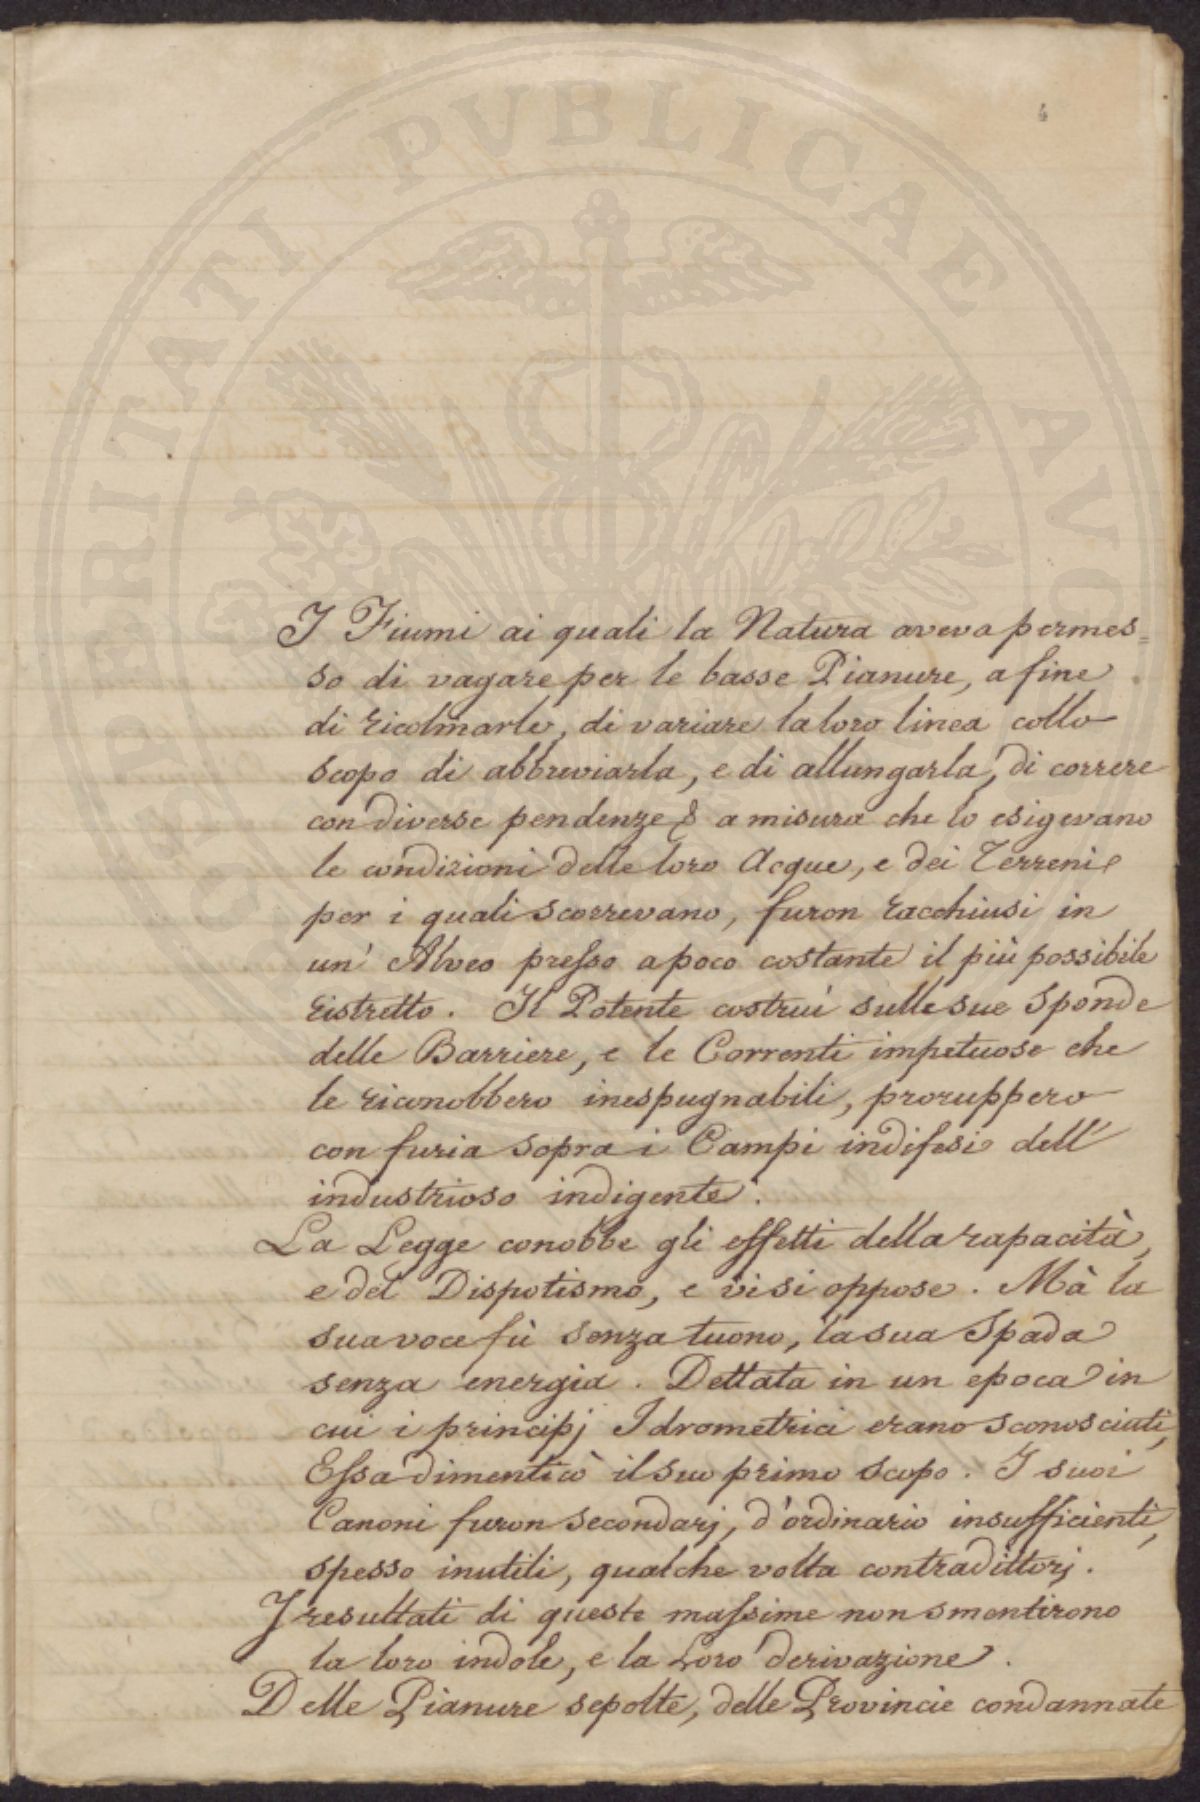 PROSPERITATI PVBLICAE AVGENDAE
4
I Fiumi ai quali la Natura aveva permes=
so di vagare per le basse Pianure, a fine
di ricolmarle, di variare la loro linea collo
scopo di abbreviarla, e di allungarla, di correre
con diverse pendenze a misura che lo esigevano
le condizioni delle loro Acque, e dei Terreni
per i quali scorrevano, furon racchiusi in
un' Alveo presso a poco costante il più possibile
ristretto. Il Potente costruì sulle sue Sponde
delle Barriere, e le Correnti impetuose che
le riconobbero inespugnabili, proruppero
con furia sopra i Campi indifesi dell'
industrioso indigente.
La Legge conobbe gli effetti della rapacità,
e del Dispotismo, e vi si oppose. Mà la
sua voce fù senza tuono, la sua Spada
senza energia. Dettata in un epoca in
cui i principj Idrometrici erano sconosciuti,
Essa dimenticò il suo primo scopo. I suoi
Canoni furon secondarj, d'ordinario insufficienti,
spesso inutili, qualche volta contradittorj.
I resultati di queste massime non smentirono
la loro indole, e la Loro derivazione.
Delle Pianure sepolte, delle Provincie condannate